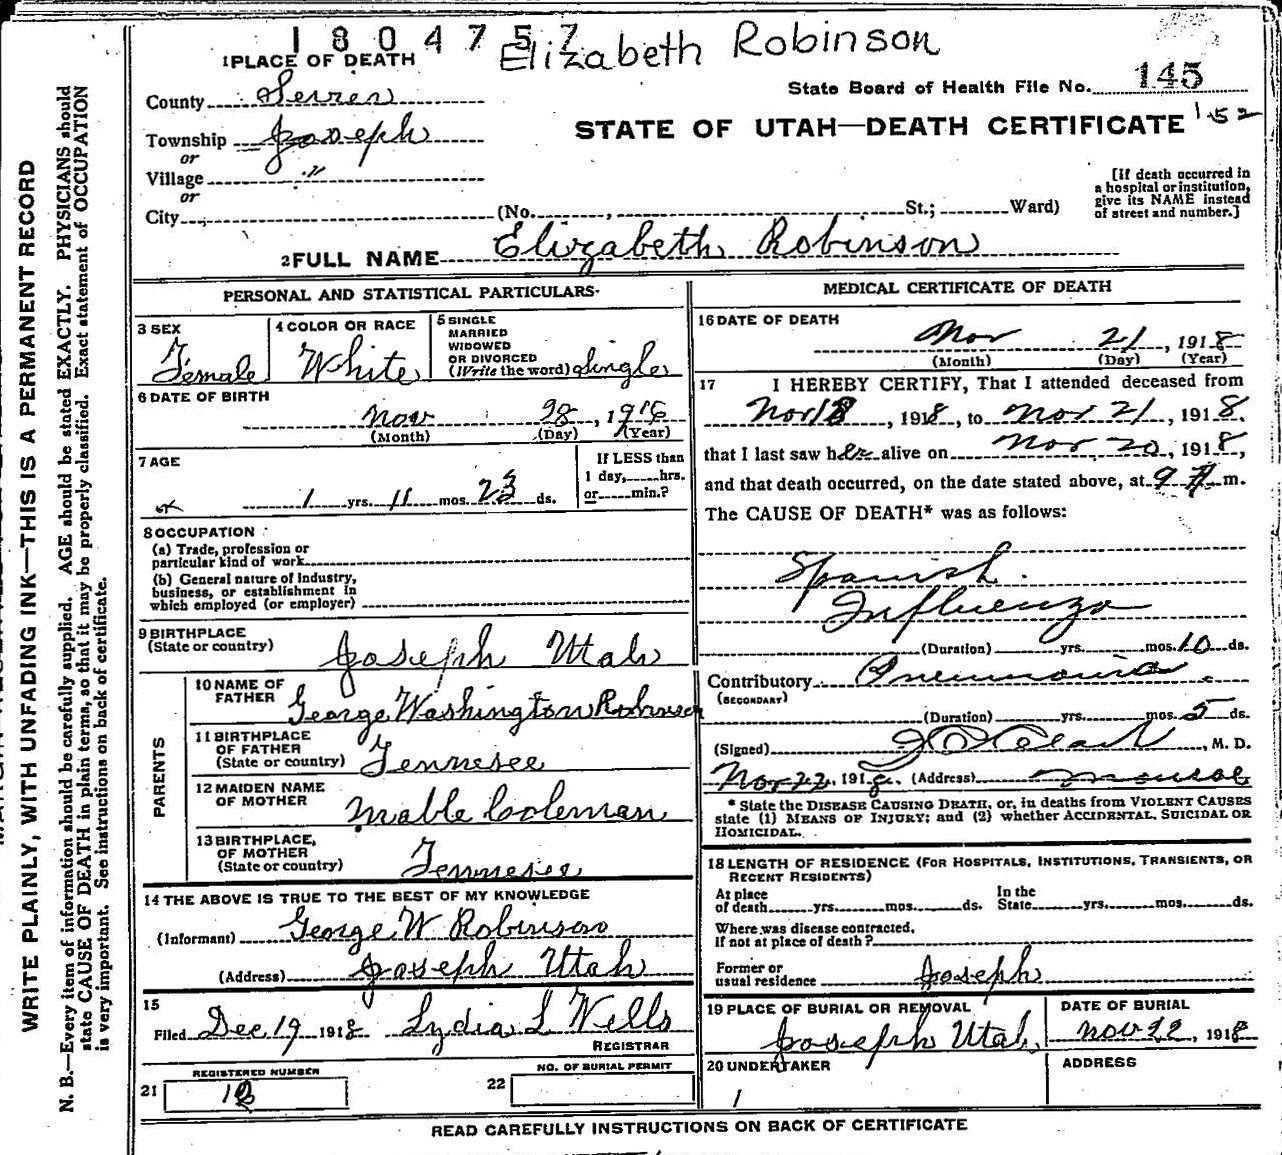 1804757 Elizabeth Robinson
1 PLACE OF DEATH
State Board of Health File No. 145
County Sevier
152
STATE OF UTAH—DEATH CERTIFICATE
Township Joseph
or
Village "
or
City (No. , St.; Ward)
[If death occurred in
a hospital or institution,
give its NAME instead
of street and number.]
2 FULL NAME Elizabeth Robinson
PERSONAL AND STATISTICAL PARTICULARS
3 SEX
Female
4 COLOR OR RACE
White
5 SINGLE
MARRIED
WIDOWED
OR DIVORCED
(Write the word) Single
6 DATE OF BIRTH
Nov 28, 1916
(Month) (Day) (Year)
7 AGE
1 yrs. 11 mos. 23 ds.
If LESS than
1 day, hrs.
or min.?
8 OCCUPATION
(a) Trade, profession or
particular kind of work
(b) General nature of Industry,
business, or establishment in
which employed (or employer)
9 BIRTHPLACE
(State or country) Joseph Utah
PARENTS
10 NAME OF
FATHER George Washington Robinson
11 BIRTHPLACE
OF FATHER
(State or country) Tennesee
12 MAIDEN NAME
OF MOTHER Mable Coleman
13 BIRTHPLACE,
OF MOTHER
(State or country) Tennesee
14 THE ABOVE IS TRUE TO THE BEST OF MY KNOWLEDGE
(Informant) George W Robinson
(Address) Joseph Utah
15
Filed Dec 19 1918 Lydia L Wells
REGISTRAR
REGISTERED NUMBER
21
NO. OF BURIAL PERMIT
22
MEDICAL CERTIFICATE OF DEATH
16 DATE OF DEATH
Nov 21, 1918
(Month) (Day) (Year)
17 I HEREBY CERTIFY, That I attended deceased from
Nov 18, 1918, to Nov 21, 1918,
that I last saw her alive on Nov 20, 1918,
and that death occurred, on the date stated above, at 9 m.
The CAUSE OF DEATH* was as follows:
Spanish
Influenza
(Duration) yrs. mos. 10 ds.
Contributory Pneumonia
(SECONDARY)
(Duration) yrs. mos. 5 ds.
(Signed) , M. D.
Nov 22, 1918. (Address) Monroe
* State the DISEASE CAUSING DEATH, or, in deaths from VIOLENT CAUSES
state (1) MEANS OF INJURY; and (2) whether ACCIDENTAL, SUICIDAL OR
HOMICIDAL.
18 LENGTH OF RESIDENCE (FOR HOSPITALS, INSTITUTIONS, TRANSIENTS, OR
RECENT RESIDENTS)
At place
of death yrs. mos. ds.
In the
State yrs. mos. ds.
Where was disease contracted,
If not at place of death?
Former or
usual residence Joseph
19 PLACE OF BURIAL OR REMOVAL
Joseph Utah,
DATE OF BURIAL
Nov 22, 1918
20 UNDERTAKER
ADDRESS
READ CAREFULLY INSTRUCTIONS ON BACK OF CERTIFICATE
WRITE PLAINLY, WITH UNFADING INK—THIS IS A PERMANENT RECORD
N. B.—Every item of information should be carefully supplied. AGE should be stated EXACTLY. PHYSICIANS should
state CAUSE OF DEATH in plain terms, so that it may be properly classified. Exact statement of OCCUPATION
is very important. See instructions on back of certificate.